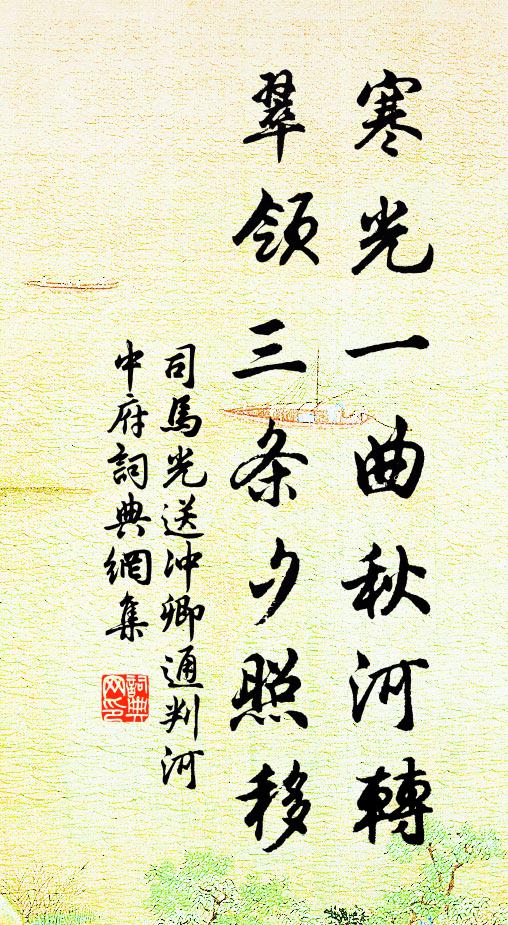 寒光一曲秋河轉
翠領三条夕照移
司馬光送冲卿通判河
中府詞典網集
詞典网印